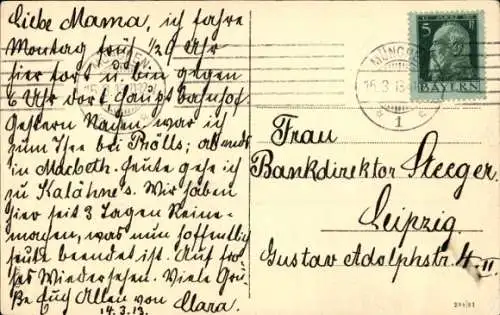 Liebe Mama, ich fahre
Montag früh 1/29 Uhr
hier fort u. bin gegen
6 Uhr dort Hauptbahnhof.
Gestern Nachm. war ich
zum Thee bei Prölls; abends
in Macbeth. Heute gehe ich
zu Kalähne's. Wir haben
hier seit 3 Tagen Reine-
machen, was nun hoffentlich
heute beendet ist. Auf fro-
hes Wiedersehen. Viele Grü-
ße Euch Allen von Clara.
14.3.13.
MÜNCHEN
15.3.13
1
5
BAYERN
Frau
Bankdirektor Steeger
Leipzig.
Gustav Adolphstr. 4 II